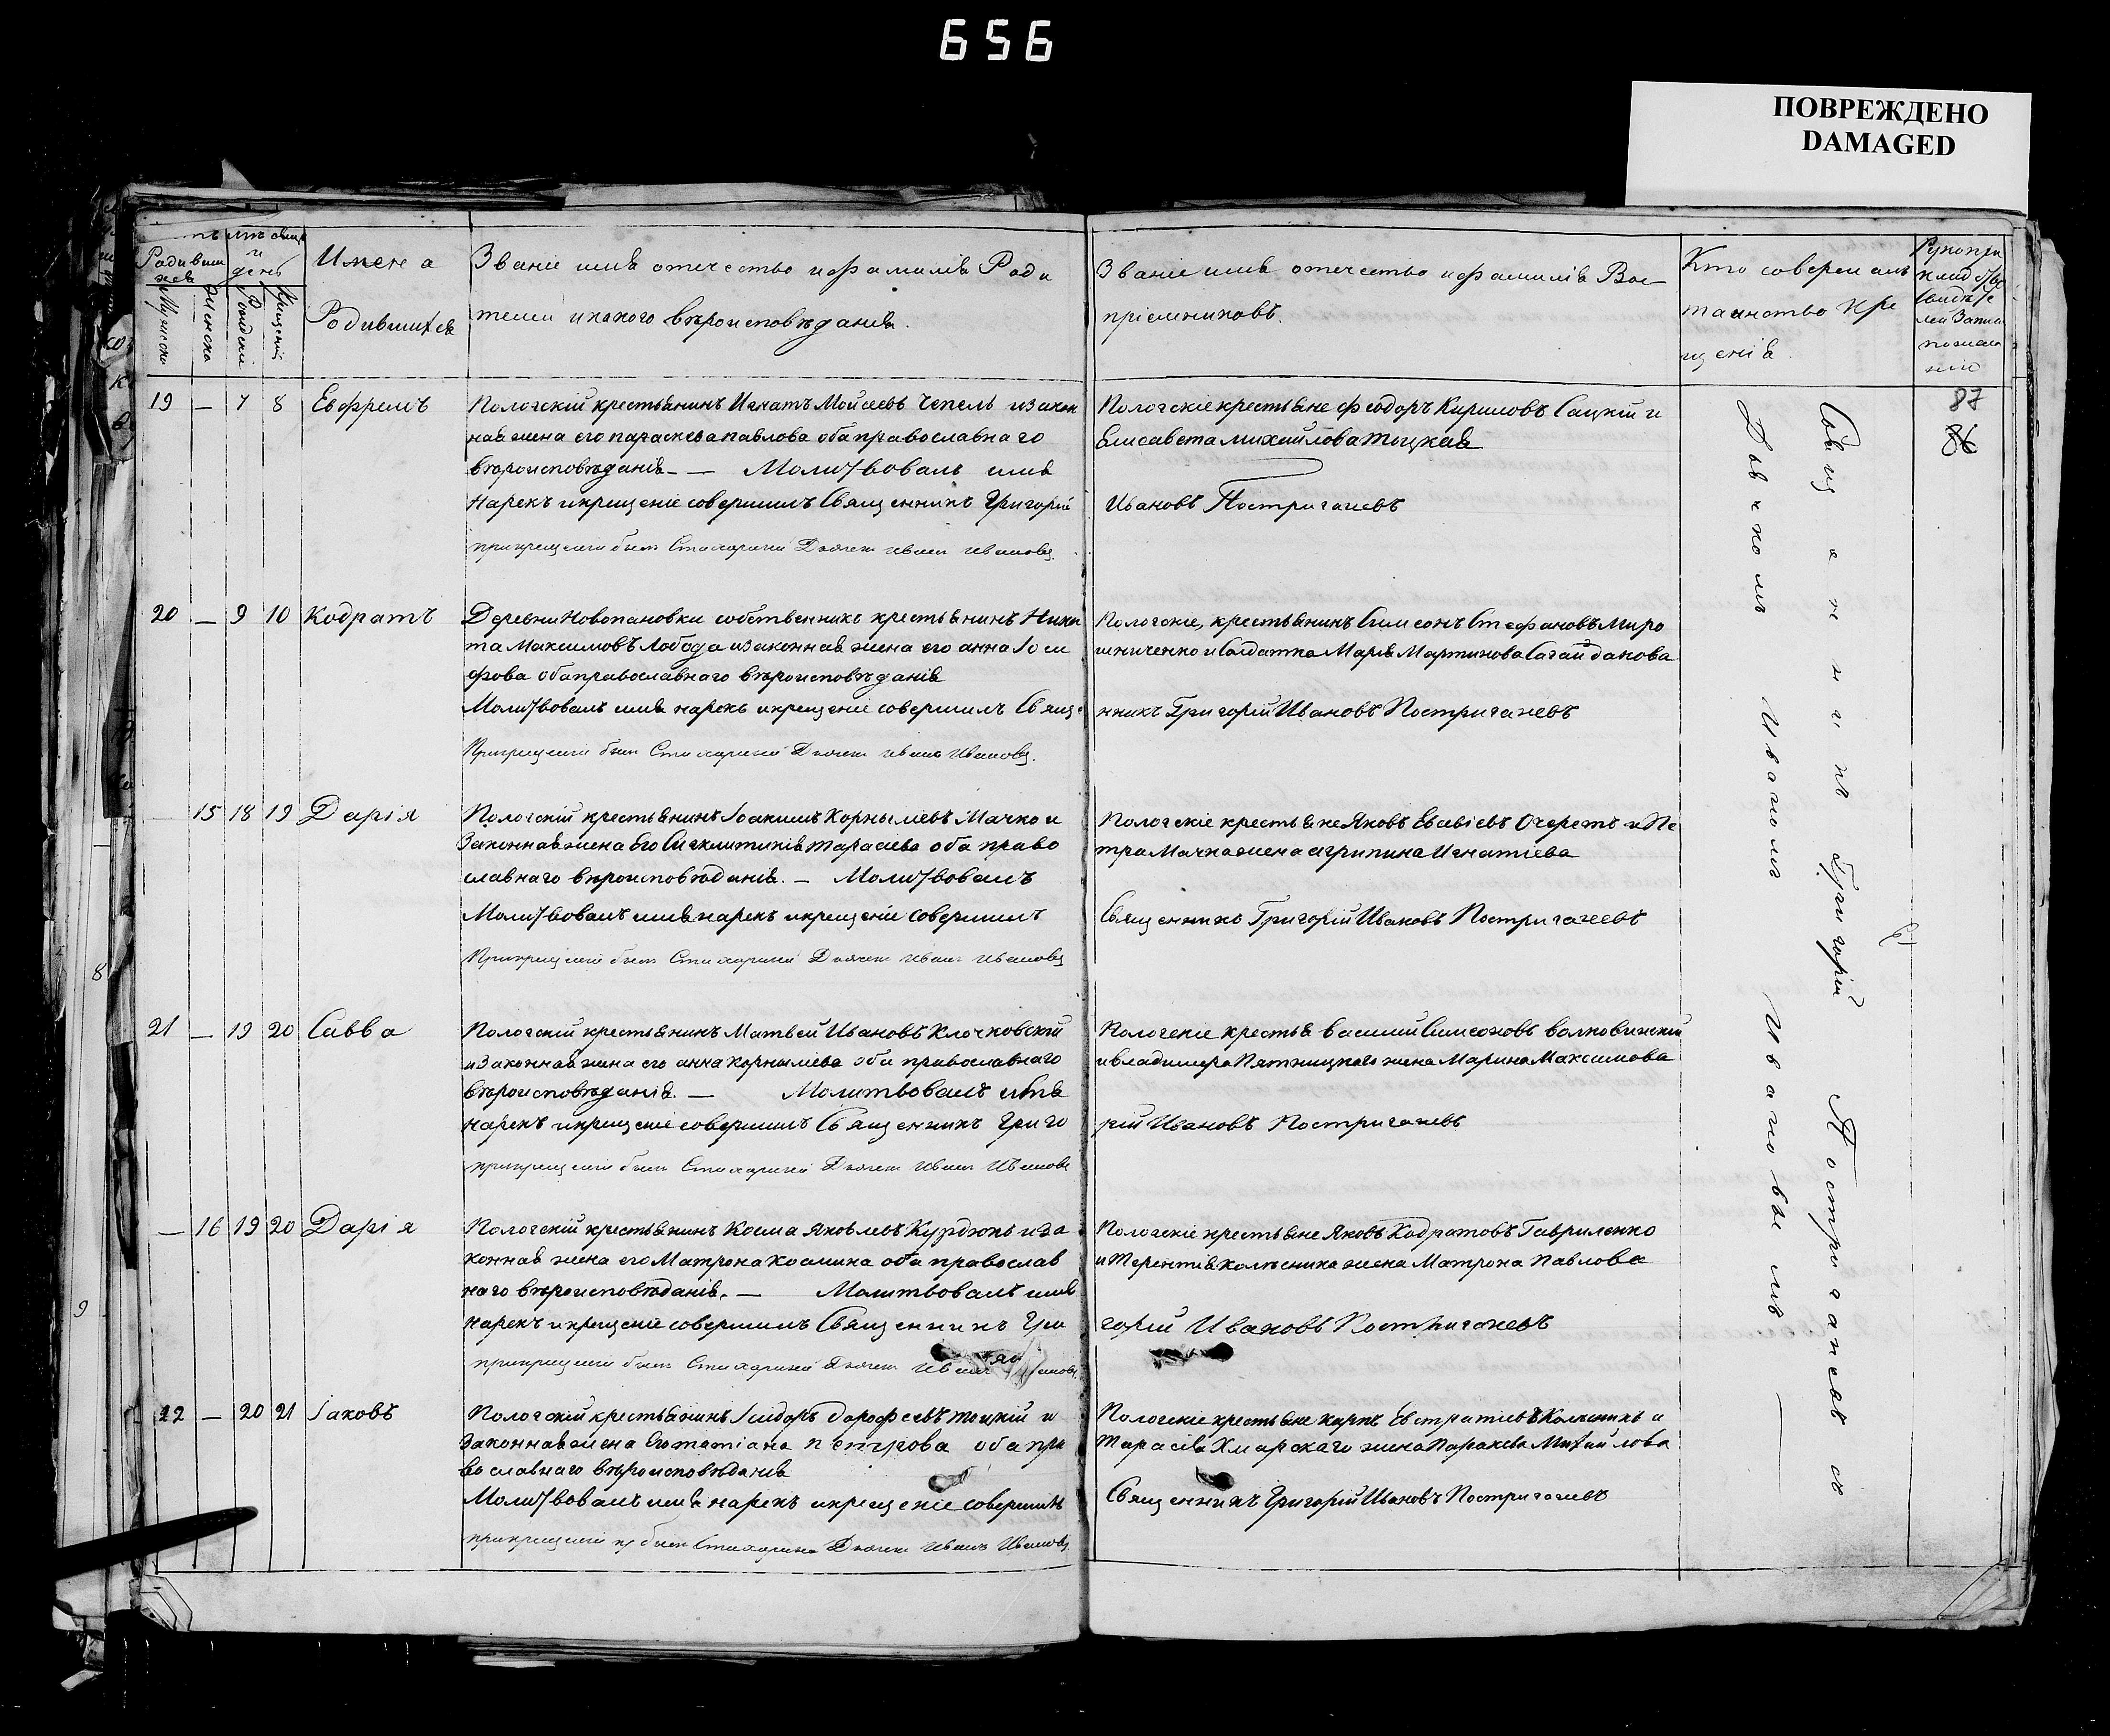 656
ПОВРЕЖДЕНО
DAMAGED
Родивши
хся
и
день
Имена
Родившихся
Званіе имя отечество и фамилія Роди
телей и какого вѣроисповѣданія.
Званіе имя отечество и фамилія Вос-
пріемниковъ.
Кто совершалъ
таинство кре
щенія.
87
86
19 — 7 8 Евфремъ
Пологскій крестьянинъ Игнатъ Мойсеевъ Чепель и закон
ная жена его параскева павлова оба православнаго
вѣроисповѣданія — — Молитвовалъ имя
Нарекъ и крещеніе совершилъ Священникъ Григорій
при крещеніи былъ Дьячекъ Иванъ Ивановъ.
Пологскіе крестьяне Феодоръ Кириловъ Сацкій и
Елисавета михайлова тоцкая
Ивановъ Постригачевъ
20 — 9 10 Кодратъ
Деревни Новопановки собственникъ крестьянинъ Ники
та Максимовъ Лобода и законная жена его анна Іоси
фова оба православнаго вѣроисповѣданія
Молитвовалъ имя нарекъ и крещеніе совершилъ Свяще
При крещеніи былъ Дьячекъ Иванъ Ивановъ.
Пологскіе, крестьянинъ Симеонъ Стефановъ Миро
шниченко и Солдатка Марія Мартинова Сагайдакова
нникъ Григорій Ивановъ Постригачевъ
15 18 19 Дарія
Пологскій крестьянинъ Іоакимъ Корныліевъ Мачко и
Законная жена Его тарасіева оба право
славнаго вѣроисповѣданія. — Молитвовалъ
Молитвовалъ имя нарекъ и крещеніе совершилъ
При крещеніи былъ Дьячекъ Иванъ Ивановъ
Пологскіе крестьяне Яковъ Евсвіевъ Очеретъ и Пе
тра Мачка жена агрипина Игнатіева
Священникъ Григорій Ивановъ Постригачевъ
21 — 19 20 Савва
Пологскій крестьянинъ Матвей Ивановъ Клочковскій
и Законная жена его анна корныліева оба православнаго
вѣроисповѣданія. — Молитвовалъ имя
нарекъ и крещеніе совершилъ Священникъ Григо
при крещеніи былъ Дьячекъ Иванъ Ивановъ
Пологскіе крестья Василий Симеоновъ Волковинскій
и владимера Пятницкаго жена Марина Максимова
рій Ивановъ Постригачевъ
— 16 19 20 Дарія
Пологскій крестьянинъ Косма Яковлевъ Курдюкъ и за
конная жена его Матрона космина оба православ
наго вѣроисповѣданія. — Молитвовалъ имя
нарекъ и крещеніе совершилъ Священникъ Гри
при крещеніи былъ Дьячекъ Иванъ
Пологскіе крестьяне Яковъ Кодратовъ Гавриленко
и Терентія колѣсника жена Матрона Павлова
горій Ивановъ Постригачевъ
22 — 20 21 Іаковъ
Пологскій крестьянинъ Ісидоръ дорофеевъ тоцкій и
Законная жена Его татіана петрова оба пра
вославнаго вѣроисповѣданія
Молитвовалъ имя нарекъ и крещеніе совершилъ
при крещеніи былъ Дьячекъ Иванъ Ивановъ.
Пологскіе крестьяне карпъ Евстратіевъ Колѣсникъ и
Тарасія Хмарскаго жена Параскева Михайлова
Священникъ Григорій Ивановъ Постригачевъ
Священникъ Григорій Постригачевъ съ
Дьячкомъ Иваномъ Ивановымъ —
8
9